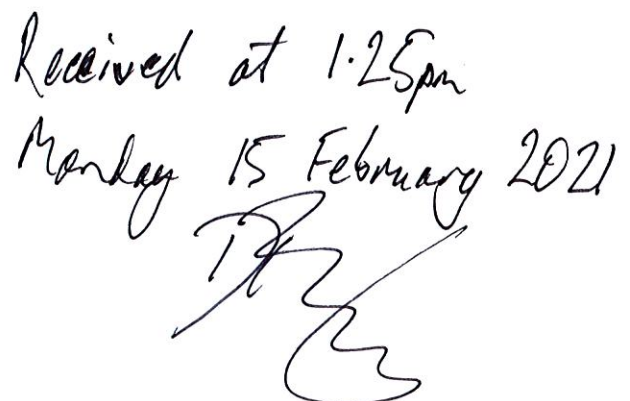 Received at 1.25pm
Monday 15 February 2021